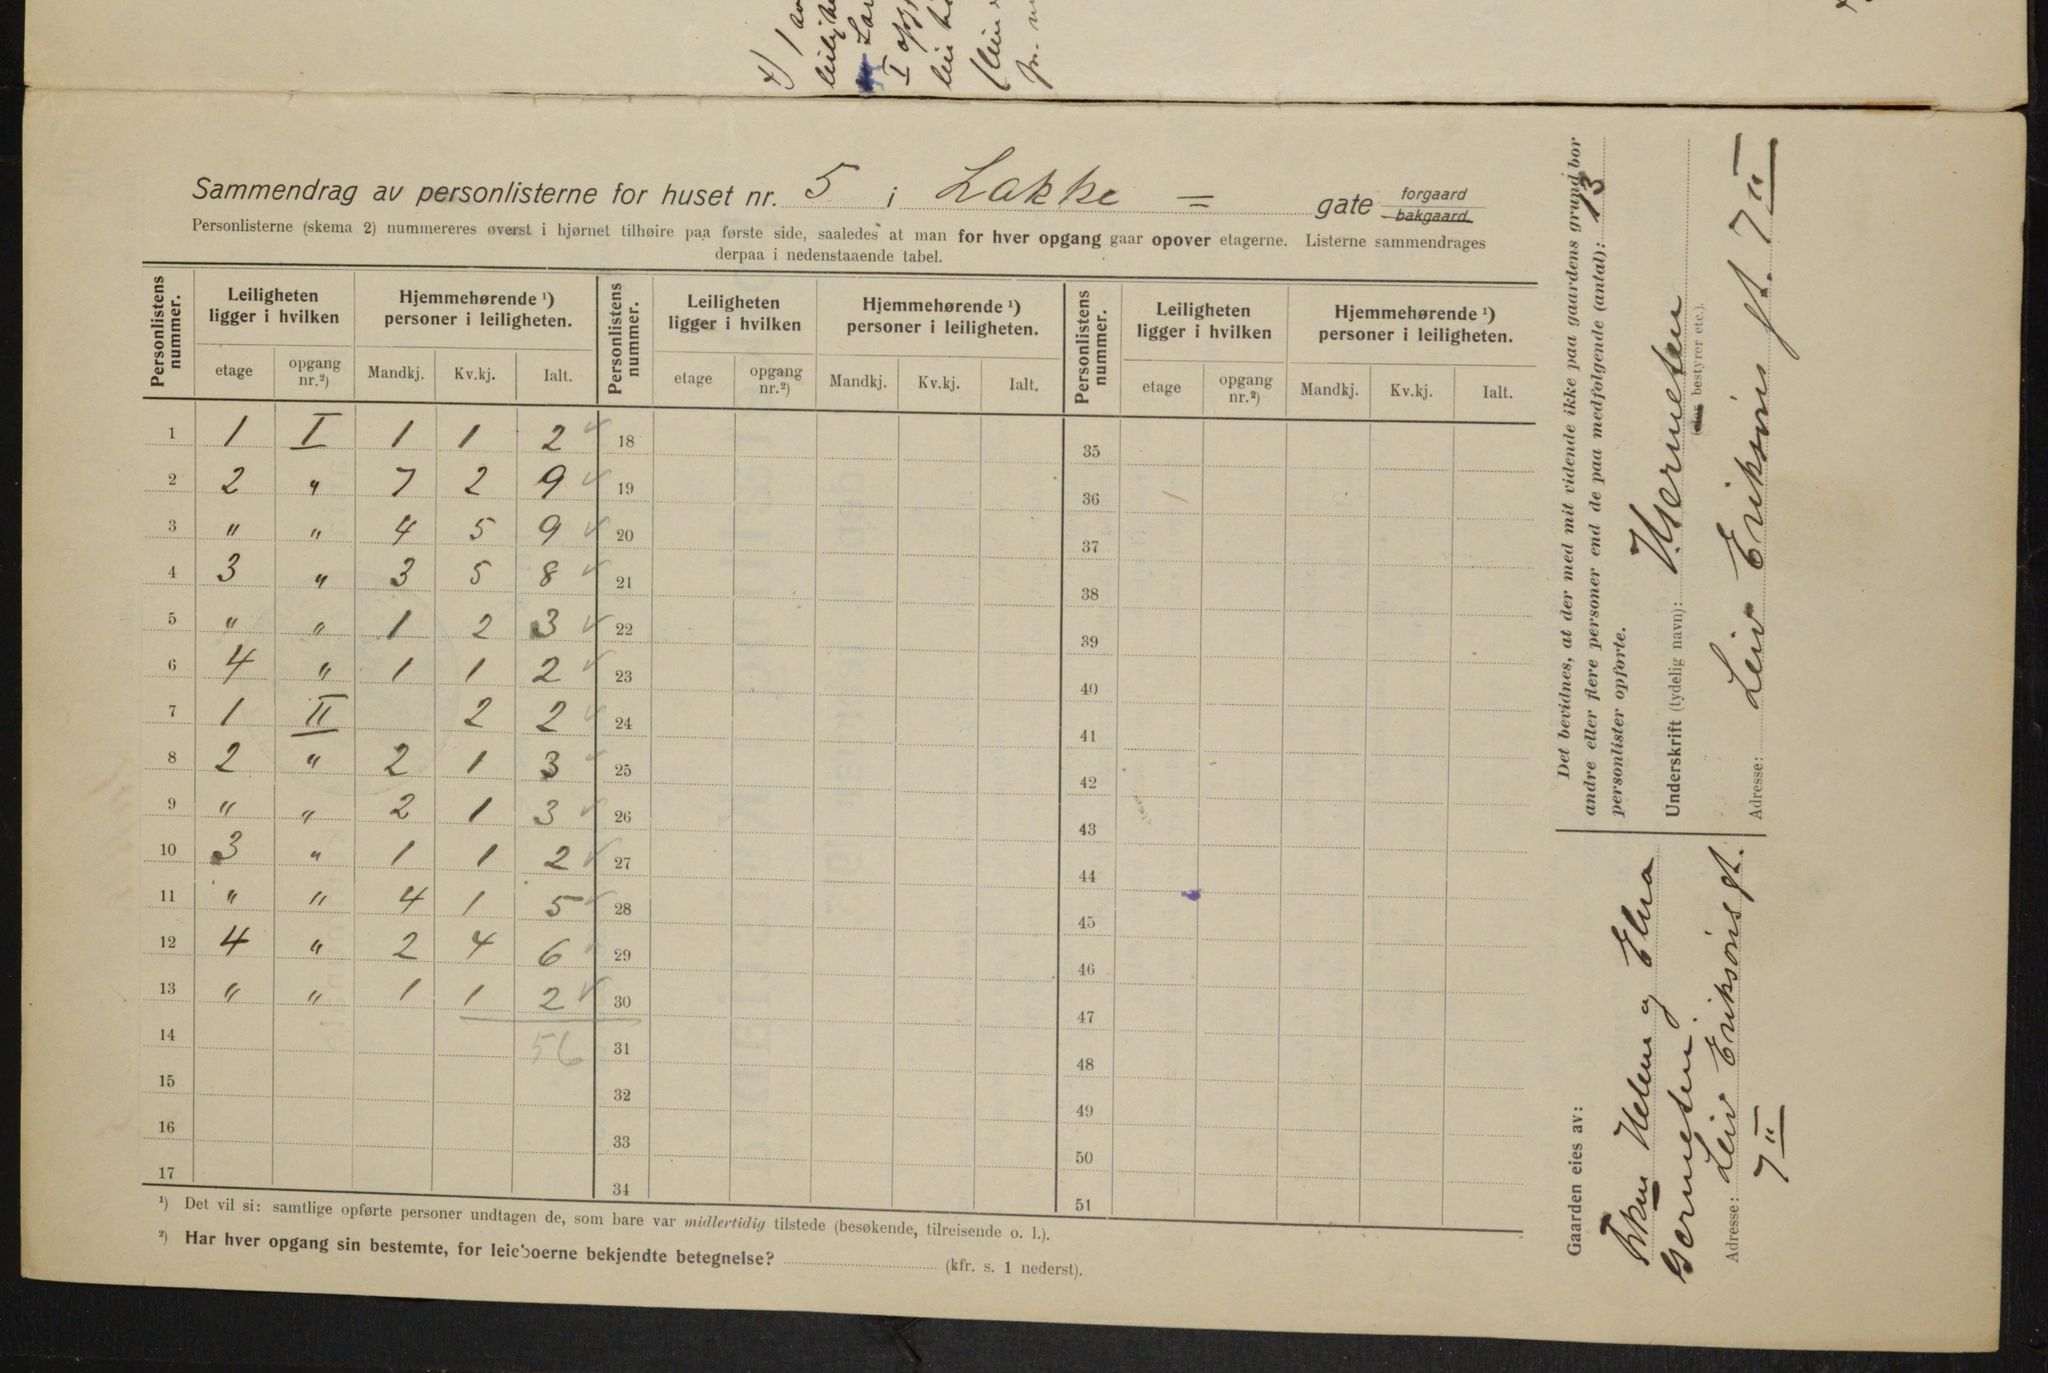 Sammendrag av personlisterne for huset nr. 5 i Lakke = gate forgaard bakgaard
Personlisterne (skema 2) nummereres øverst i hjørnet tilhøire paa første side, saaledes at man for hver opgang gaar opover etagerne. Listerne sammendrages
derpaa i nedenstaaende tabel.
Personlistens nummer. Leiligheten ligger i hvilken Hjemmehørende ¹) personer i leiligheten. Personlistens nummer. Leiligheten ligger i hvilken Hjemmehørende ¹) personer i leiligheten. Personlistens nummer. Leiligheten ligger i hvilken Hjemmehørende ¹) personer i leiligheten.
etage opgang nr.²) Mandkj. Kv.kj. Ialt. etage opgang nr.²) Mandkj. Kv.kj. Ialt. etage opgang nr.²) Mandkj. Kv.kj. Ialt.
1 1 I 1 1 2 18 35
2 2 " 7 2 9 19 36
3 " " 4 5 9 20 37
4 3 " 3 5 8 21 38
5 " " 1 2 3 22 39
6 4 " 1 1 2 23 40
7 1 II 2 2 24 41
8 2 " 2 1 3 25 42
9 " " 2 1 3 26 43
10 3 " 1 1 2 27 44
11 " " 4 1 5 28 45
12 4 " 2 4 6 29 46
13 " " 1 1 2 30 47
14 56 31 48
15 32 49
16 33 50
17 34 51
¹) Det vil si: samtlige opførte personer undtagen de, som bare var midlertidig tilstede (besøkende, tilreisende o. l.).
²) Har hver opgang sin bestemte, for leieboerne bekjendte betegnelse? (kfr. s. 1 nederst).
Det bevidnes, at der med mit vidende ikke paa gaardens grund bor
andre eller flere personer end de paa medfolgende (antal): 13
personlister opførte.
Underskrift (tydelig navn):
bestyrer etc.).
Adresse: Leiv Eriksöns gt. 7 II
Gaarden eies av:
Helen og Elna
Adresse: Leiv Eriksöns gt.
7 II